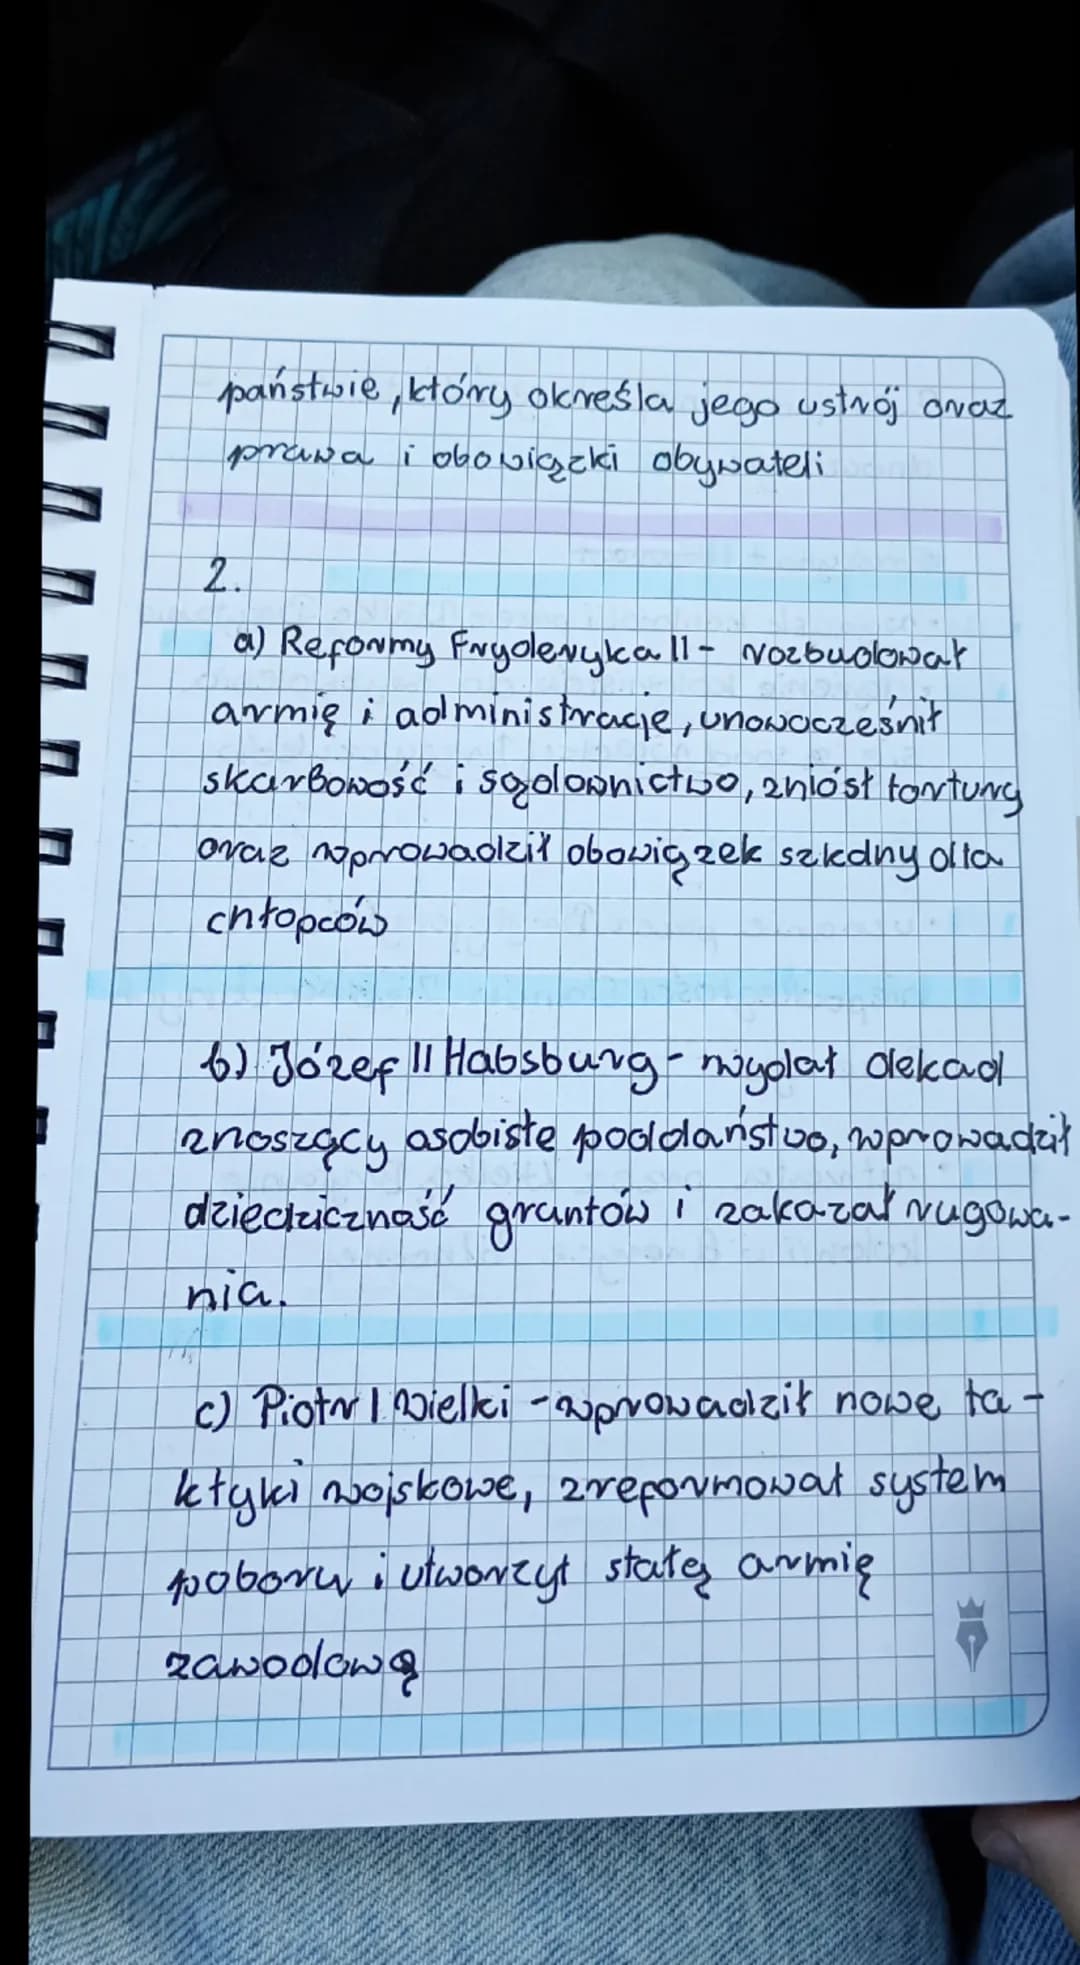 państwie, który określa jego ustrój oraz
prawa i obowiązki obywateli
2.
a) Reformy Fryderyka II - rozbudował
armię i administracje, unowocześnił
skarbowość i sądownictwo, zniósł tortury
oraz wprowadził obowiązek szkolny dla
chłopców
b) Józef II Habsburg - wydał dekad
znoszący osobiste poddaństwo, wprowadził
dziedziczność gruntów i zakazał rugowa-
nia.
c) Piotr I Wielki - wprowadził nowe ta-
ktyki wojskowe, zreformował system
poboru i utworzył stałą armię
zawodową